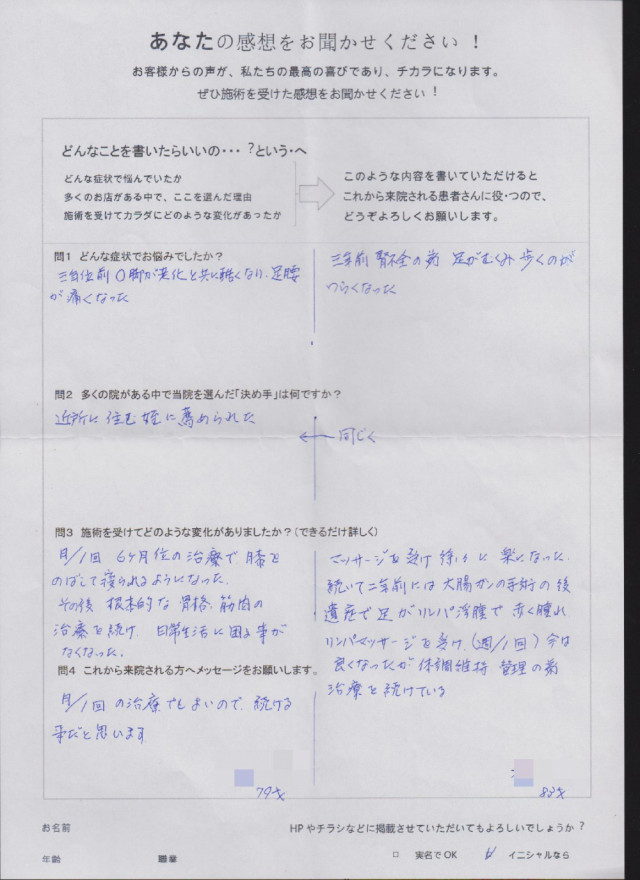 あなたの感想をお聞かせください！
お客様からの声が、私たちの最高の喜びであり、チカラになります。
ぜひ施術を受けた感想をお聞かせください！
どんなことを書いたらいいの・・・？という・へ
どんな症状で悩んでいたか
多くのお店がある中で、ここを選んだ理由
施術を受けてカラダにどのような変化があったか
このような内容を書いていただけると
これから来院される患者さんに役・つので、
どうぞよろしくお願いします。
問1 どんな症状でお悩みでしたか？
三年位前 O脚が悪化と共に酷くなり、足腰
が痛くなった
三年前 腎不全の為 足がむくみ 歩くのが
つらくなった
問2 多くの院がある中で当院を選んだ「決め手」は何ですか？
近所に住む姪に薦められた
← 同じく
問3 施術を受けてどのような変化がありましたか？(できるだけ詳しく)
月/1回 6ヶ月位の治療で膝を
のばして寝られるようになった。
その後 根本的な骨格、筋肉の
治療を続け 日常生活に困る事が
なくなった。
マッサージを受け 徐々に楽になった。
続いて二年前には大腸ガンの手術の後
遺症で足がリンパ浮腫で赤く腫れ
リンパマッサージを受け、(週/1回) 今は
良くなったが 体調維持 管理の為
治療を続けている
問4 これから来院される方へメッセージをお願いします。
月/1回の治療でもよいので、続ける
事だと思います
79才
83才
お名前
HPやチラシなどに掲載させていただいてもよろしいでしょうか？
年齢 職業
□ 実名でOK イニシャルなら